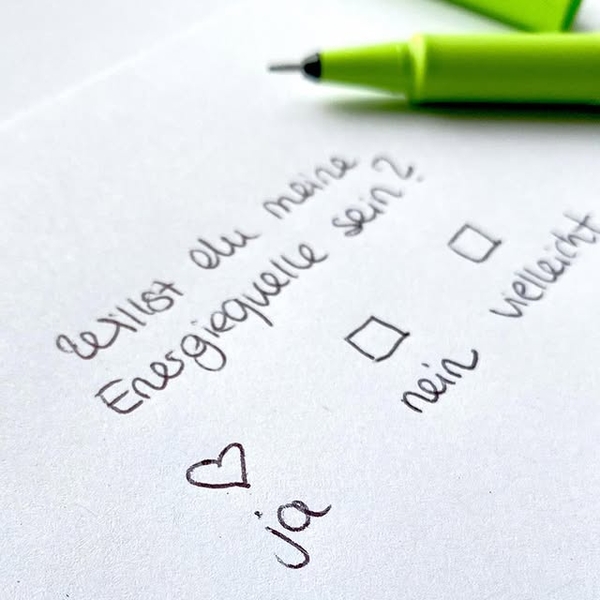 Willst du meine
Energiequelle sein?
ja nein vielleicht